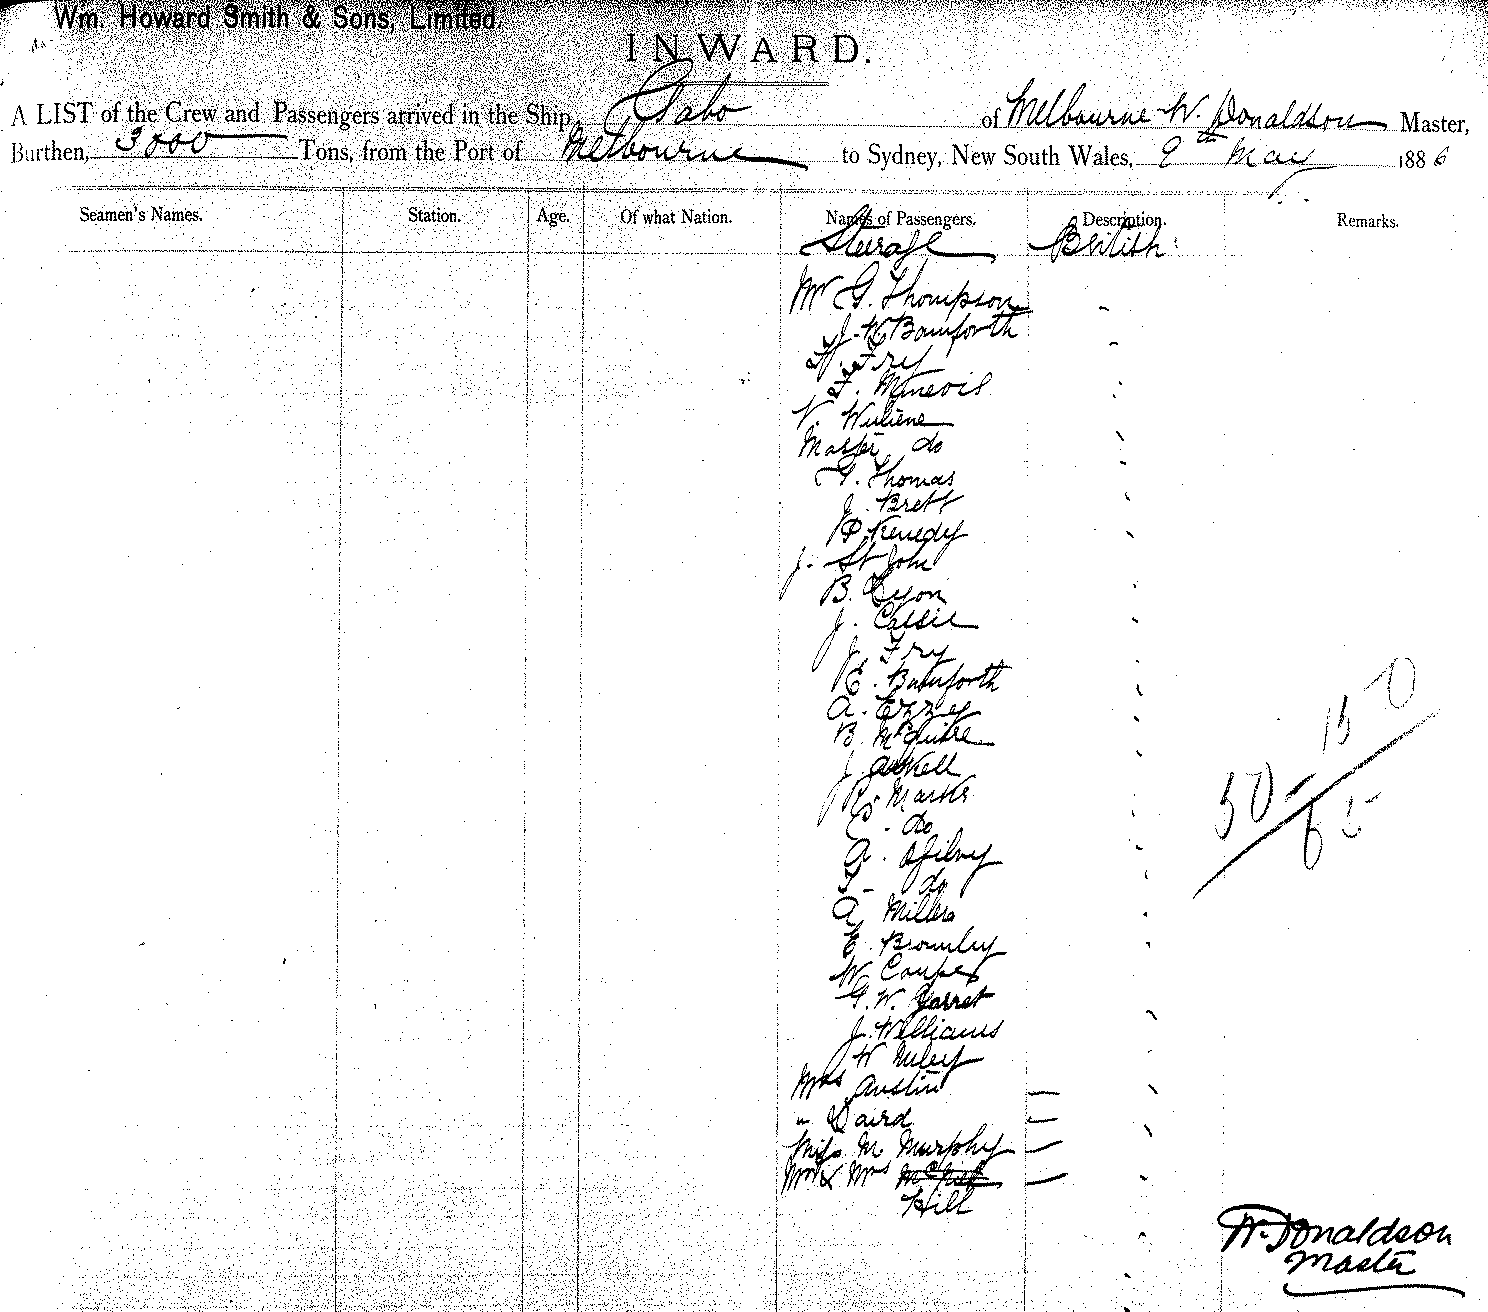 Wm. Howard Smith & Sons, Limited.
INWARD.
A LIST of the Crew and Passengers arrived in the Ship Gabo of Melbourne W. Donaldson Master,
Burthen, 3000 Tons, from the Port of Melbourne to Sydney, New South Wales, 9th May 1886
Seamen's Names. Station. Age. Of what Nation. Names of Passengers. Description. Remarks.
Steerage British
Mr G. Thompson
Bamforth
Fry
V.
Master do
G. Thomas
J. Brett
P. Kenedy
J. St John
B. Lyon
J.
J. Fry
E. Bamforth
A. Ezzey
B. McGuire
J.
R. Marks
E. do
A. Ogilvy
do
A Millers
E. Bromley
W Couper
G. W. Garret
J. Williams
W
Mrs Austin
" Baird
Miss M Murphy
Mr & Mrs
Hill
150
50
65
W. Donaldson
Master